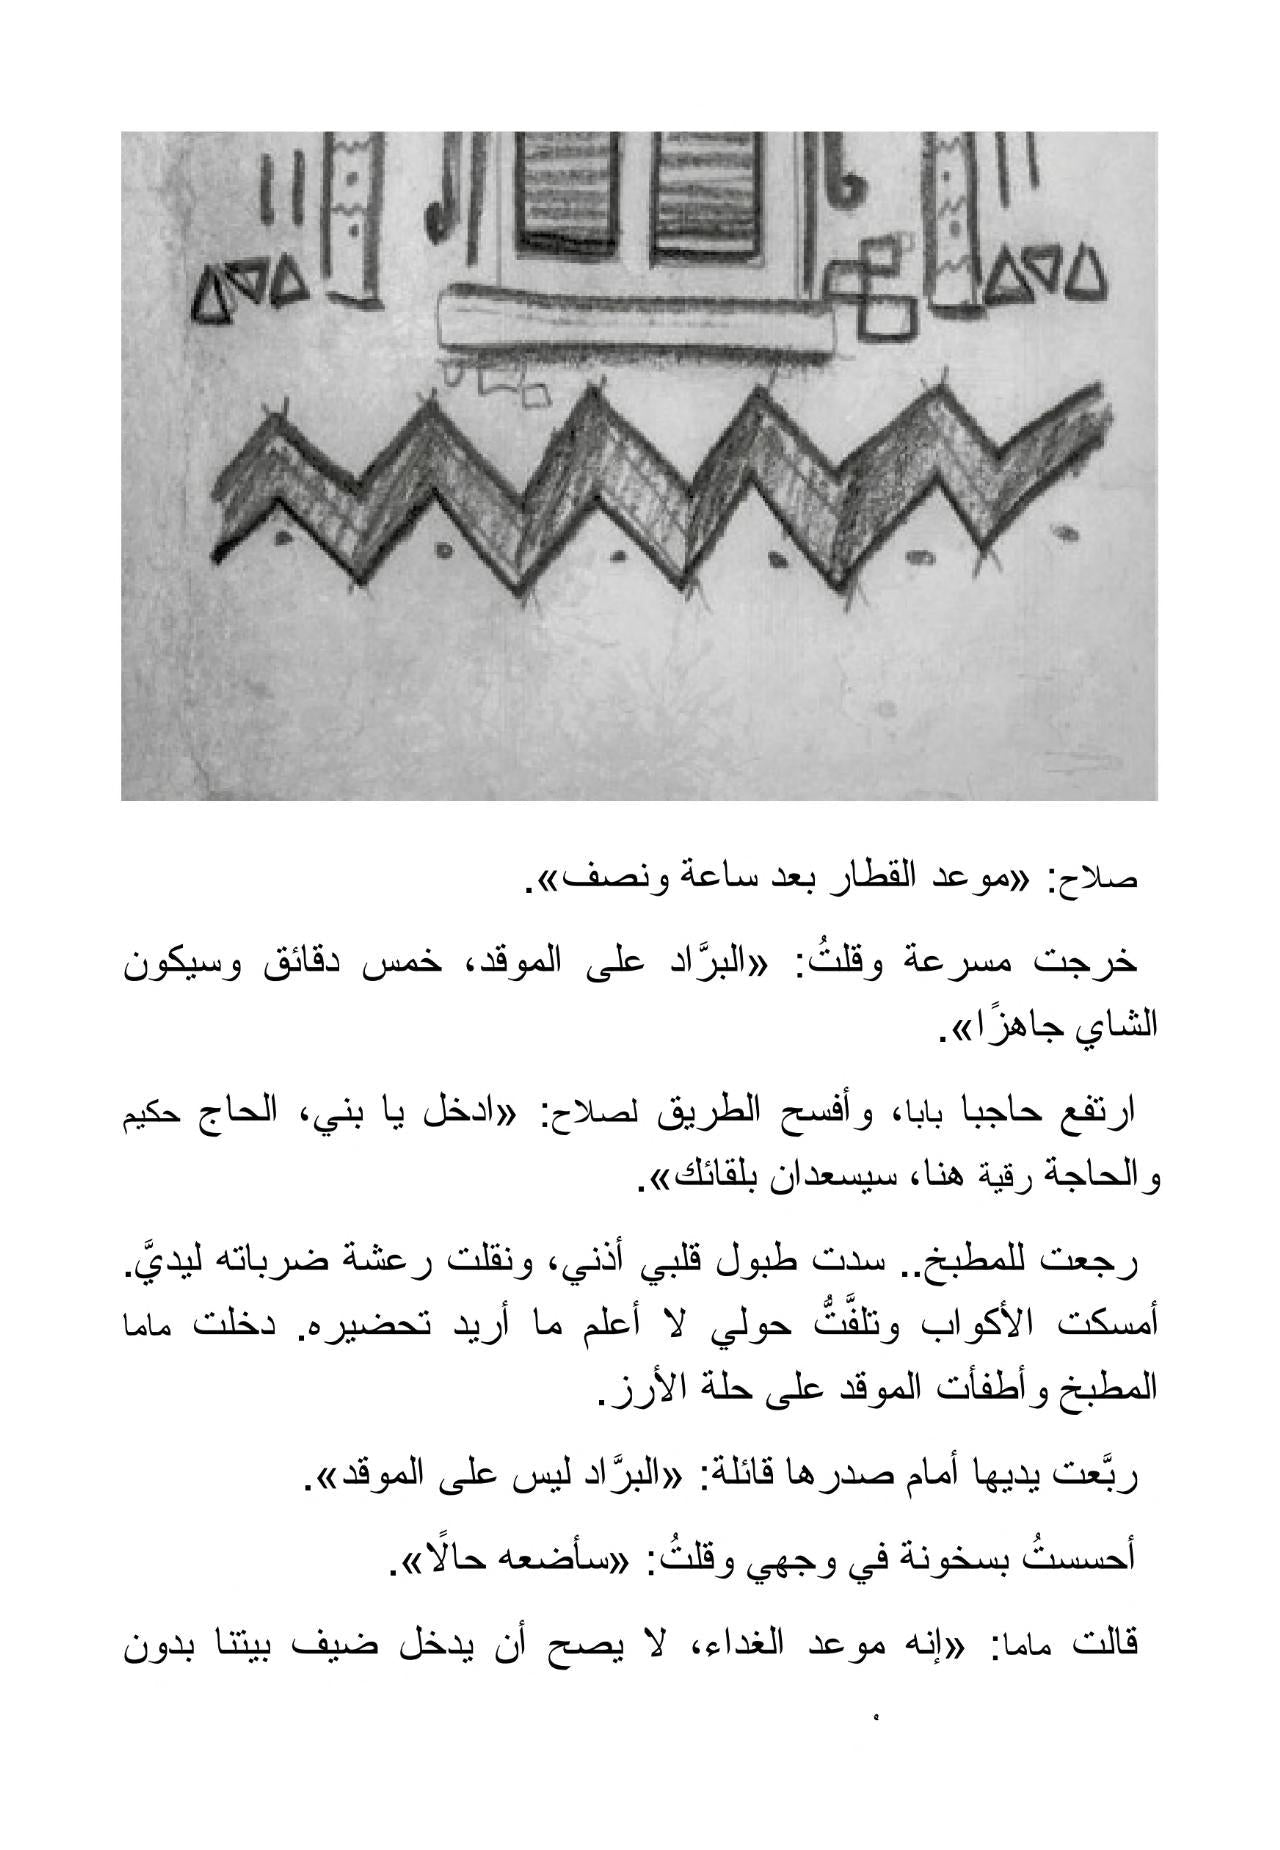 صلاح: «موعد القطار بعد ساعة ونصف».
خرجت مسرعة وقلتُ: «البرَّاد على الموقد، خمس دقائق وسيكون
الشاي جاهزًا».
ارتفع حاجبا بابا، وأفسح الطريق لصلاح: «ادخل يا بني، الحاج حكيم
والحاجة رقية هنا، سيسعدان بلقائك».
رجعت للمطبخ.. سدت طبول قلبي أذني، ونقلت رعشة ضرباته ليديَّ.
أمسكت الأكواب وتلفَّتُّ حولي لا أعلم ما أريد تحضيره. دخلت ماما
المطبخ وأطفأت الموقد على حلة الأرز.
ربَّعت يديها أمام صدرها قائلة: «البرَّاد ليس على الموقد».
أحسستُ بسخونة في وجهي وقلتُ: «سأضعه حالًا».
قالت ماما: «إنه موعد الغداء، لا يصح أن يدخل ضيف بيتنا بدون